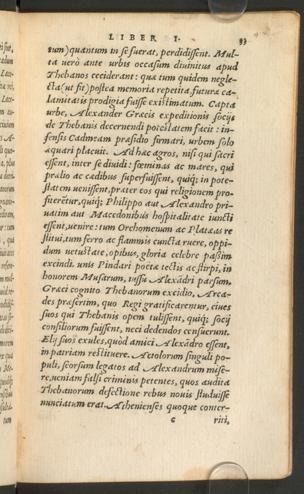 LIBER I. 33
tum) quantum in se fuerat, perdidissent. Mul-
ta uerò ante urbis occasum diuinitus apud
Thebanos ceciderant: qua tum quidem negle-
cta (ut fit) postea memoria repetita, futura ca-
lamitatis prodigia fuisse existimatum. Capta
urbe, Alexander Græcis expeditionis socijs
de Thebanis decernendi potestatem facit: in-
fensis Cadmeam præsidio firmari, urbem solo
æquari placuit. Ad hæc agros, nisi qui sacri
essent, inter se diuidi: fœminas ac mares, qui
prælio ac cædibus superfuissent, quiq; in pote-
statem uenissent, præter eos qui religionem pro-
fuerētur, quiq; Philippo aut Alexandro pri-
uatim aut Macedonibus hospitalitate iuncti
essent, uenire: tum Orchomenum ac Platæas re
stitui, tum ferro ac flammis cuncta ruere, oppi-
dum uetustate, opibus, gloria celebre passim
excindi. unis Pindari poetæ tectis ac stirpi, in
honorem Musarum, iussu Alexādri parsum.
Græci cognito Thebanorum excidio, Arca-
des præsertim, quo Regi gratificarentur, ciues
suos qui Thebanis opem tulissent, quiq; socij
consiliorum fuissent, neci dedendos censuerunt.
Elij suos exules, quòd amici Alexādro essent,
in patriam restituere. Aetolorum singuli po-
puli, seorsum legatos ad Alexandrum mise-
re, ueniam falsi criminis petentes, quos audita
Thebanorum defectione rebus nouis studuisse
nunciatum erat. Athenienses quoque conter-
c riti,